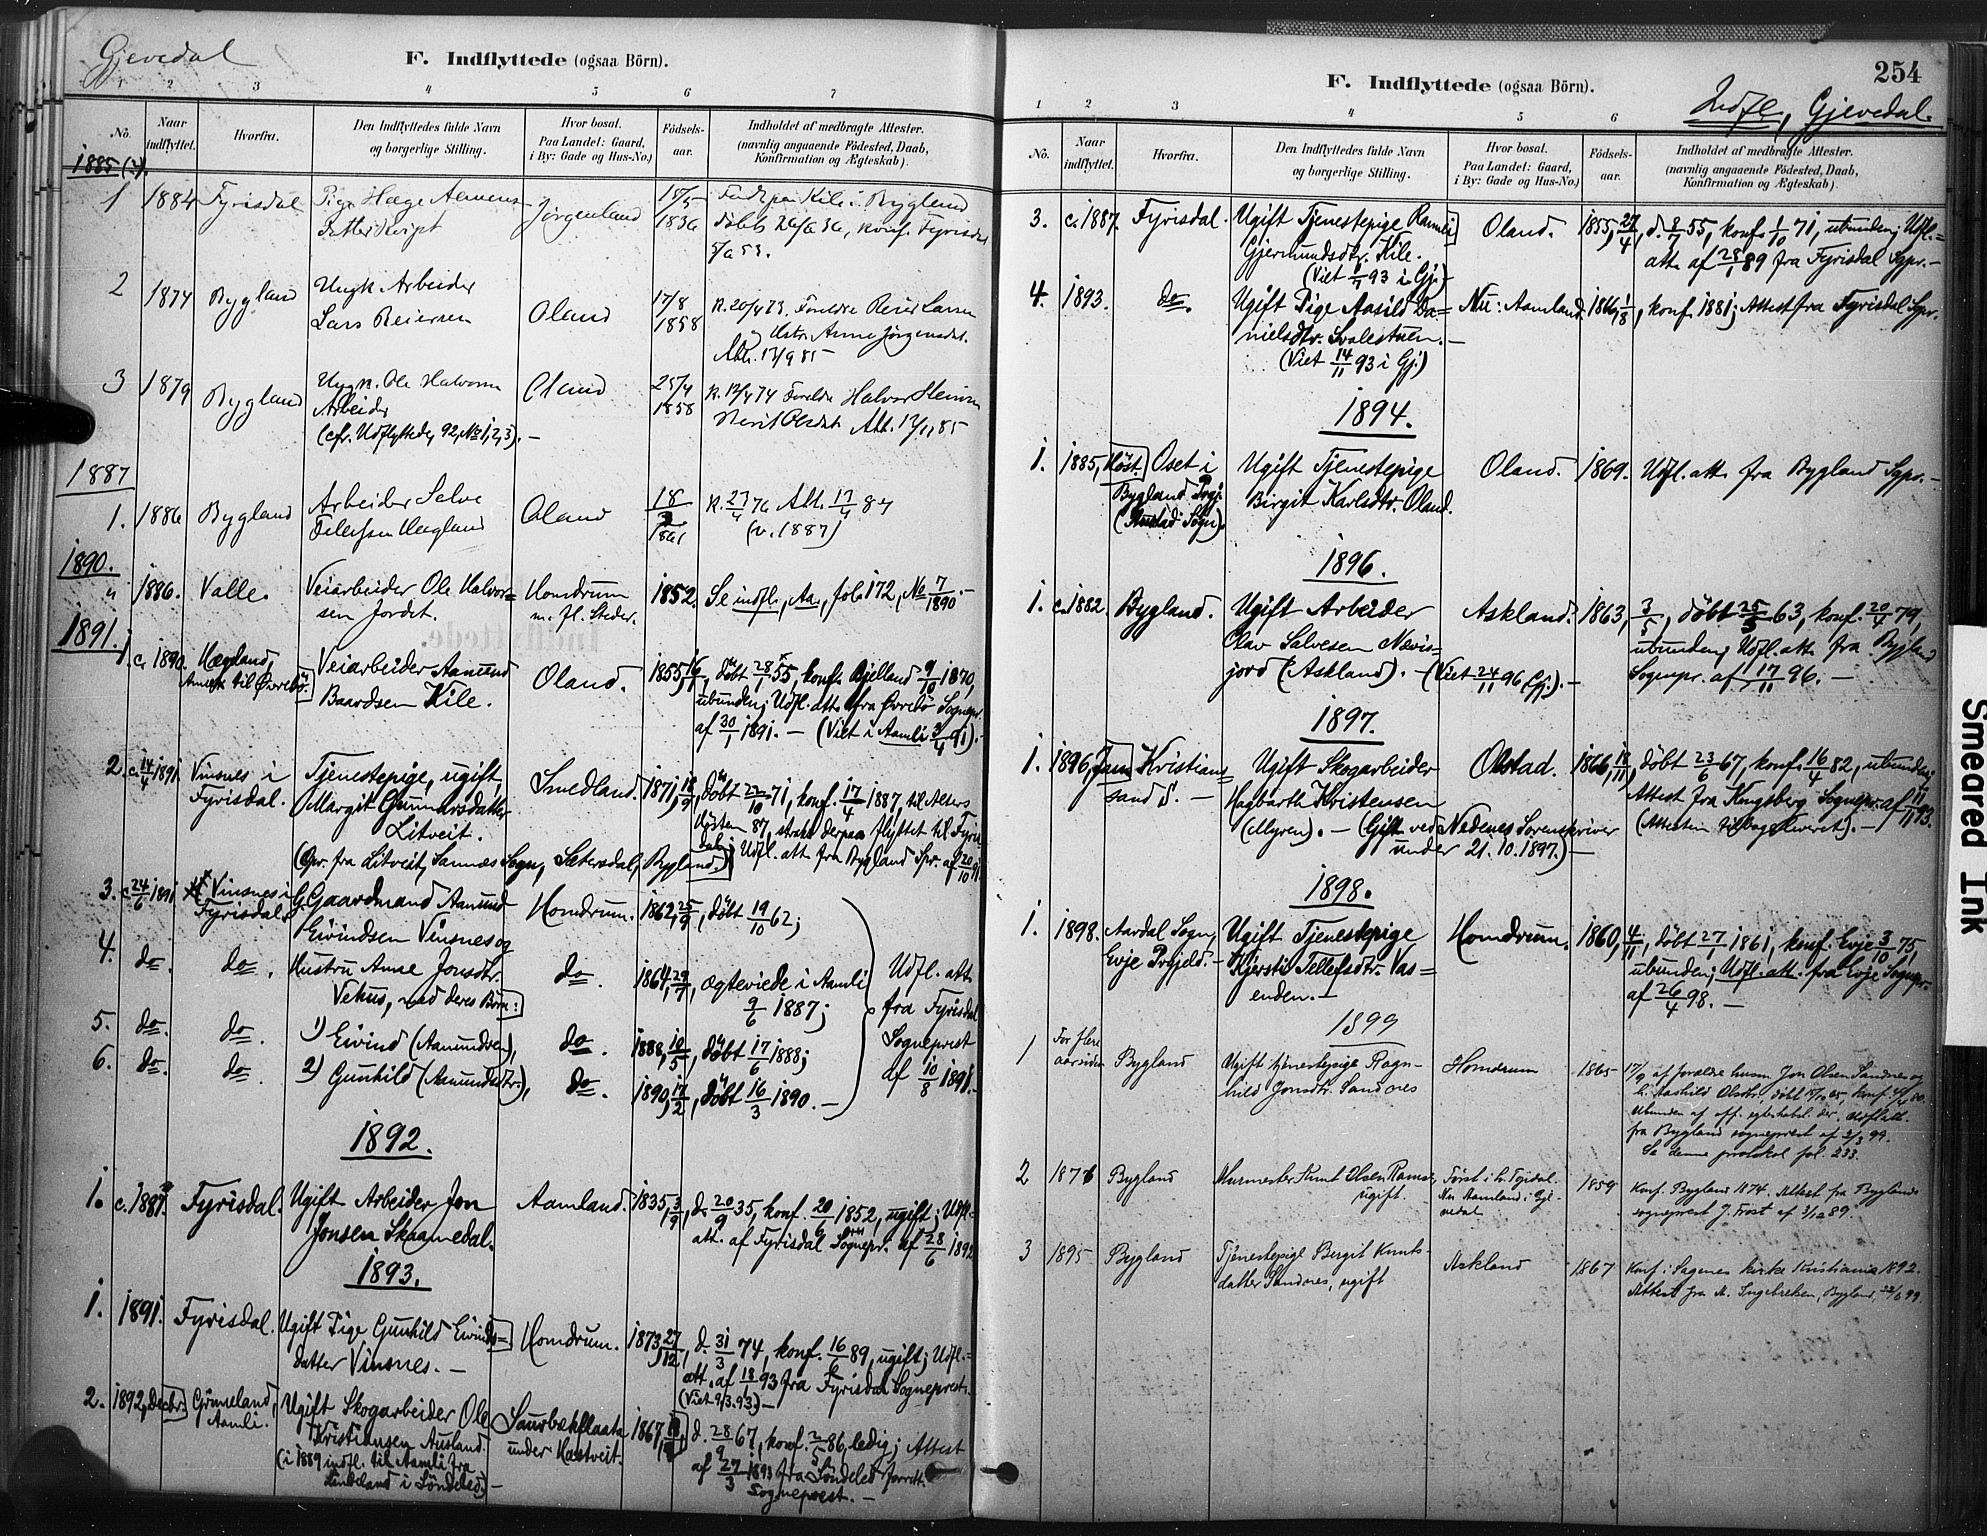 Gjevedal
F. Indflyttede (ogsaa Börn).
1 2 3 4 5 6 7
No.
Naar indflyttet.
Hvorfra.
Den Indflyttedes fulde Navn og borgerlige Stilling.
Hvor bosat. Paa Landet: Gaard, i By: Gade og Hus-No.)
Födsels-aar.
Indholdet af medbragte Attester. (navnlig angaaende Födested, Daab, Konfirmation og Ægteskab).
1885
1 1884 Fyrisdal Pige Hæge
Jörgenland 1836
döbt konf. Fyrisdal
2 1874 Bygland Ungk. Arbeider
Lars Reiersen Oland 17/8 1858
Att. 17/9 85
3 1879 Bygland Ungk. Ole Halvorsen
Arbeider Oland 25/4 1858
(cfr. Udflyttede, 92, No 1, 2, 3). -
Att. 17/11 85
1887
1. 1886 Bygland Arbeider Salve
Tellefsen Oland
K. 27/4 76 Att. 17/4 87
(v. 1887)
1890.
" 1886. Valle. Veiarbeider Ole Halvor=
sen Jordet. Homdrum
m. fl. Steder. 1852. Se indfl., Aa., fol. 172, No 7/1890. -
1891.
1. c. 1890. Hægland, Veiarbeider Aamund
Baardsen Kile. Oland. 1855, 16/1, döbt 28/1 55, konf. Bjelland 9/10 1870,
ubunden; Udfl. att. fra Øvrebö Sognepr.
af 30/1 1891. - (Viet i Aamli 3/4 91). -
2. c. 14/4 1891 Vinsnes i
Fyrisdal. Tjenestepige, ugift,
Margit Gunnarsdatter
Litveit. Smedland. 1871, 18/9, döbt 22/10 71, konf. 17/4 1887, til Alters
Hösten 87, strax derpaa flyttet til Fyris
dal; Udfl. att. fra Bygland Spr. af 20/10 91.
(Opr. fra Litveit, Sannes Sogn, Sætersdal, Bygland.)
3. c. 24/6 1891 Vinsnes i
Fyrisdal. Gaardmand Aamund
Eivindsen Vinsnes og Homdrum. 1862, 25/9, döbt 19/10 62;
4. do. do. Hustru Anne Jonsdtr.
Vehus, med deres Börn: do. 1864, 29/7, ægteviede i Aamli
9/6 1887;
5. do. do. 1) Eivind (Aamundsen), do. 1888, 10/5, döbt 17/6 1888;
6. do. do. 2) Gunhild (Aamundsdtr.), do. 1890, 17/2, döbt 16/3 1890. -
Udfl. att.
fra Fyrisdal
Sogneprest
af 10/8 1891. -
1892.
1. c. 1887. Fyrisdal. Ugift Arbeider Jon
Jonsen Skaamedal. Aamland. 1835, 3/9, d. 20/9 35, konf. 20/6 1852, ugift; Udfl.=
att. af Fyrisdal Sognepr. af 28/6 1892
1893.
1. 1891. Fyrisdal. Ugift Pige Gunhild Eivinds=
datter Vinsnes. - Homdrum. 1873, 27/12, d. 31/3 74, konf. 16/6 89, ugift; Udfl.=
att. af 18/1 93 fra Fyrisdal Sogneprest.
(Viet 9/3 93.) -
2. 1892, Decbr. Grimeland,
Aamli. Ugift Skogarbeider Ole
Kristiansen Ausland.
(i 1889 indfl. til Aamli fra
i Söndeled.) - Saurbækflaata
under Hastveit. 1867, d. 28/9 67, konf. 86, ledig; Attest
af 27/3 1893 fra Söndeled
Sogneprest. -
254
F. Indflyttede (ogsaa Börn).
Indfl., Gjevedal.
1 2 3 4 5 6
No.
Naar indflyttet.
Hvorfra.
Den Indflyttedes fulde Navn og borgerlige Stilling.
Hvor bosat. Paa Landet: Gaard, i By: Gade og Hus-No.)
Födsels-aar.
Indholdet af medbragte Attester. (navnlig angaaende Födested, Daab, Konfirmation og Ægteskab).
3. c. 1887. Fyrisdal. Ugift Tjenestepige
Gjermundsdtr. Kile.
(Viet 93 i Gj.) - Oland. 1855, 27/4, d. 8/7 55, konf. 1/10 71, ubunden; Udfl.=
att. af 28/1 89 fra Fyrisdal Sgpr. -
4. 1893. do. Ugift Pige Aasild Da=
nielsdtr. Svalestuen. -
(Viet 14/11 93 i Gj.) Nu: Aamland. 1866, 1/8, konf. 1881; Attest fra Fyrisdal Sgpr.
1894.
1. 1885, Höst. Oset i
Bygland Prgj.
Ugift Tjenestepige
Birgit Karlsdtr. Oland. Oland. 1869. Udfl. att. fra Bygland Sgpr. -
1896.
1. c. 1882. Bygland. Ugift Arbeider
Olav Salvesen
(Askland). - (Viet 24/11 96 Gj.). - Askland. 1863, 3/5, döbt 25/5 63, konf. 20/4 79,
ubunden; Udfl. att. fra Bygland
Sognepr. af 17/11 96. -
1897.
1. 1896, Jan. Kristians=
sand S. - Ugift Skogarbeider
Hagbarth Kristensen
(Myren). - (Gift ved Nedenes Sorenskriver
under 21. 10. 1897.) - Olstad. 1866, 18/11, döbt 23/6 67, konf. 16/4 82, ubunden;
Attest fra Kongsberg Sognepr. af 11/11 93.
(Attesten tilbageleveret). -
1898.
1. 1898. Aardal Sogn,
Evje Prgjeld. - Ugift Tjenestepige
Kjersti Tellefsdtr. Vas=
enden. - Homdrum. 1860, 4/11, döbt 27/1 1861, konf. Evje 3/10 75,
ubunden; Udfl. att. fra Evje Sognepr.
af 26/4 98. -
1899
1 For flere
aar siden Bygland Ugift tjenestepige Ragn-
hild Jonsdtr. Sandnes Homdrum 1865 17/9 af forældre husm. Jon Olsen Sandnes og
h. Aashild Olsdtr,
Udfl. att.
fra Bygland sogneprest af 3/3 99.
Se denne protokol fol. 233.
2 1876 Bygland Murmester Knut Olsen
ugift. Först i
Nu Aamland i Gje-
vedal 1859 Konf. Bygland 1874. Attest fra Byglands
sogneprest J. Frost af 3/12 89.
3 1895 Bygland Tjenestepige Bergit Knuts-
datter Sandnes, ugift Askland 1867 Konf. i Sagenes kirke Kristiania 1892.
Attest fra N. Ingebretsen, Bygland, 99
Smeared Ink